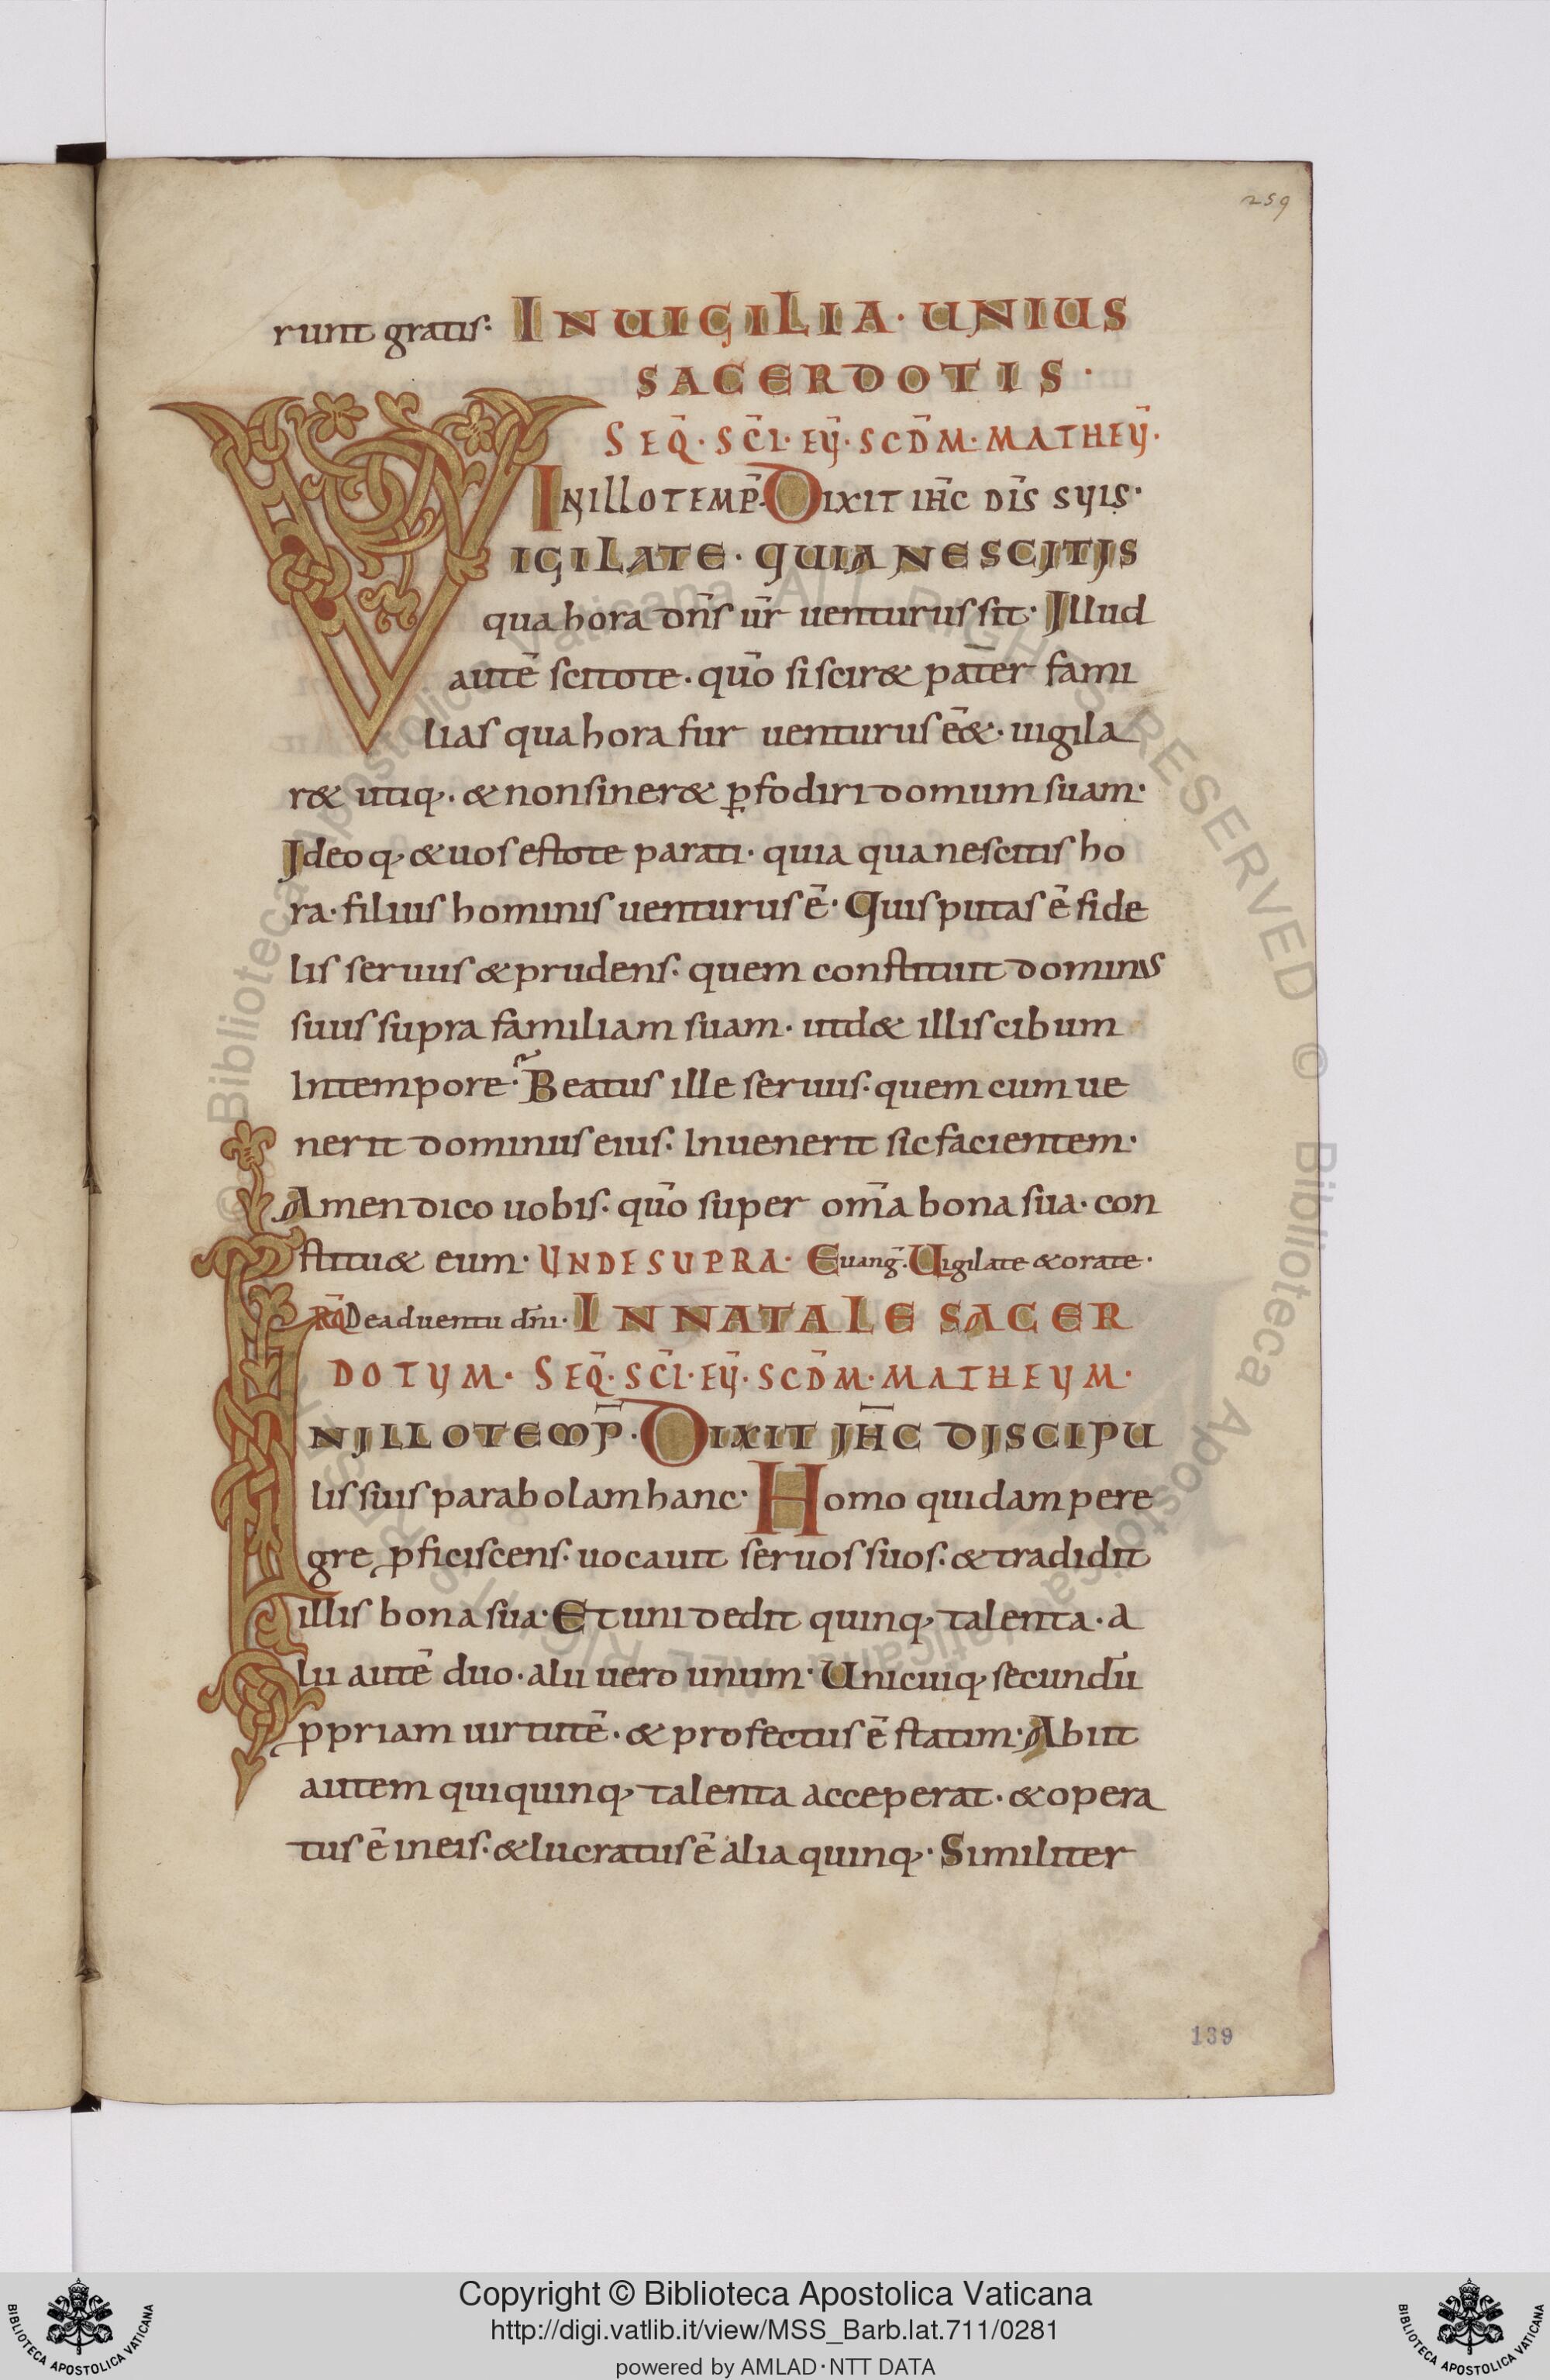 259
runt gratis· IN UIGILIA· UNIUS
SACERDOTIS·
SEQ̄· SC̄I· EŪ· SCD̄M· MATHEŪ·
IN ILLO TEMP̄· DIXIT IH̄C DIS̄ SUIS·
VIGILATE· QUIA NESCITIS
qua hora dn̄s ur̄ uenturus sit· Illud
autē scitote· quō si sciret pat̄er fami
lias qua hora fur uenturus ēet· uigila
ret utiq;· & non sineret ꝑfodiri domum suam·
Ideoq; & uos estote parati· quia qua nescitis ho
ra· filius hominis uenturus ē· Quis putas ē fide
lis seruus & prudens· quem constituit dominus
suus supra familiam suam· ut det illis cibum
In tempore·̃ Beatus ille seruus· quem cum ue
nerit dominus eius· Inuenerit sic facientem·
Amen dico uobis· quō super om̄a bona sua· con
stituet eum· UNDE SUPRA· Euang̃· Uigilate & orate·
RQ̄ De aduentu dn̄i· IN NATALE SACER
DOTUM· SEQ̄· SC̄I· EŪ· SCD̄M· MATHEUM·
IN ILLO TEMP̄· DIXIT IH̄C DISCIPU
lis suis parabolam hanc· Homo quidam pere
gre ꝓficiscens· uocauit seruos suos· & tradidit
illis bona sua· Et uni dedit quinq; talenta· a
lii autē duo· alii uero unum· Unicuiq; secundū
ꝓpriam uirtutē· & profectus ē statim· Abiit
autem qui quinq; talenta acceperat· & opera
tus ē in eis· & lucratus ē alia quinq;· Similiter
139
© Biblioteca Apostolica Vaticana ALL RIGHTS RESERVED © Biblioteca Apostolica Vaticana ALL RIGHTS RESERVED
Copyright © Biblioteca Apostolica Vaticana
http://digi.vatlib.it/view/MSS_Barb.lat.711/0281
powered by AMLAD·NTT DATA
BIBLIOTECA APOSTOLICA VATICANA
BIBLIOTECA APOSTOLICA VATICANA